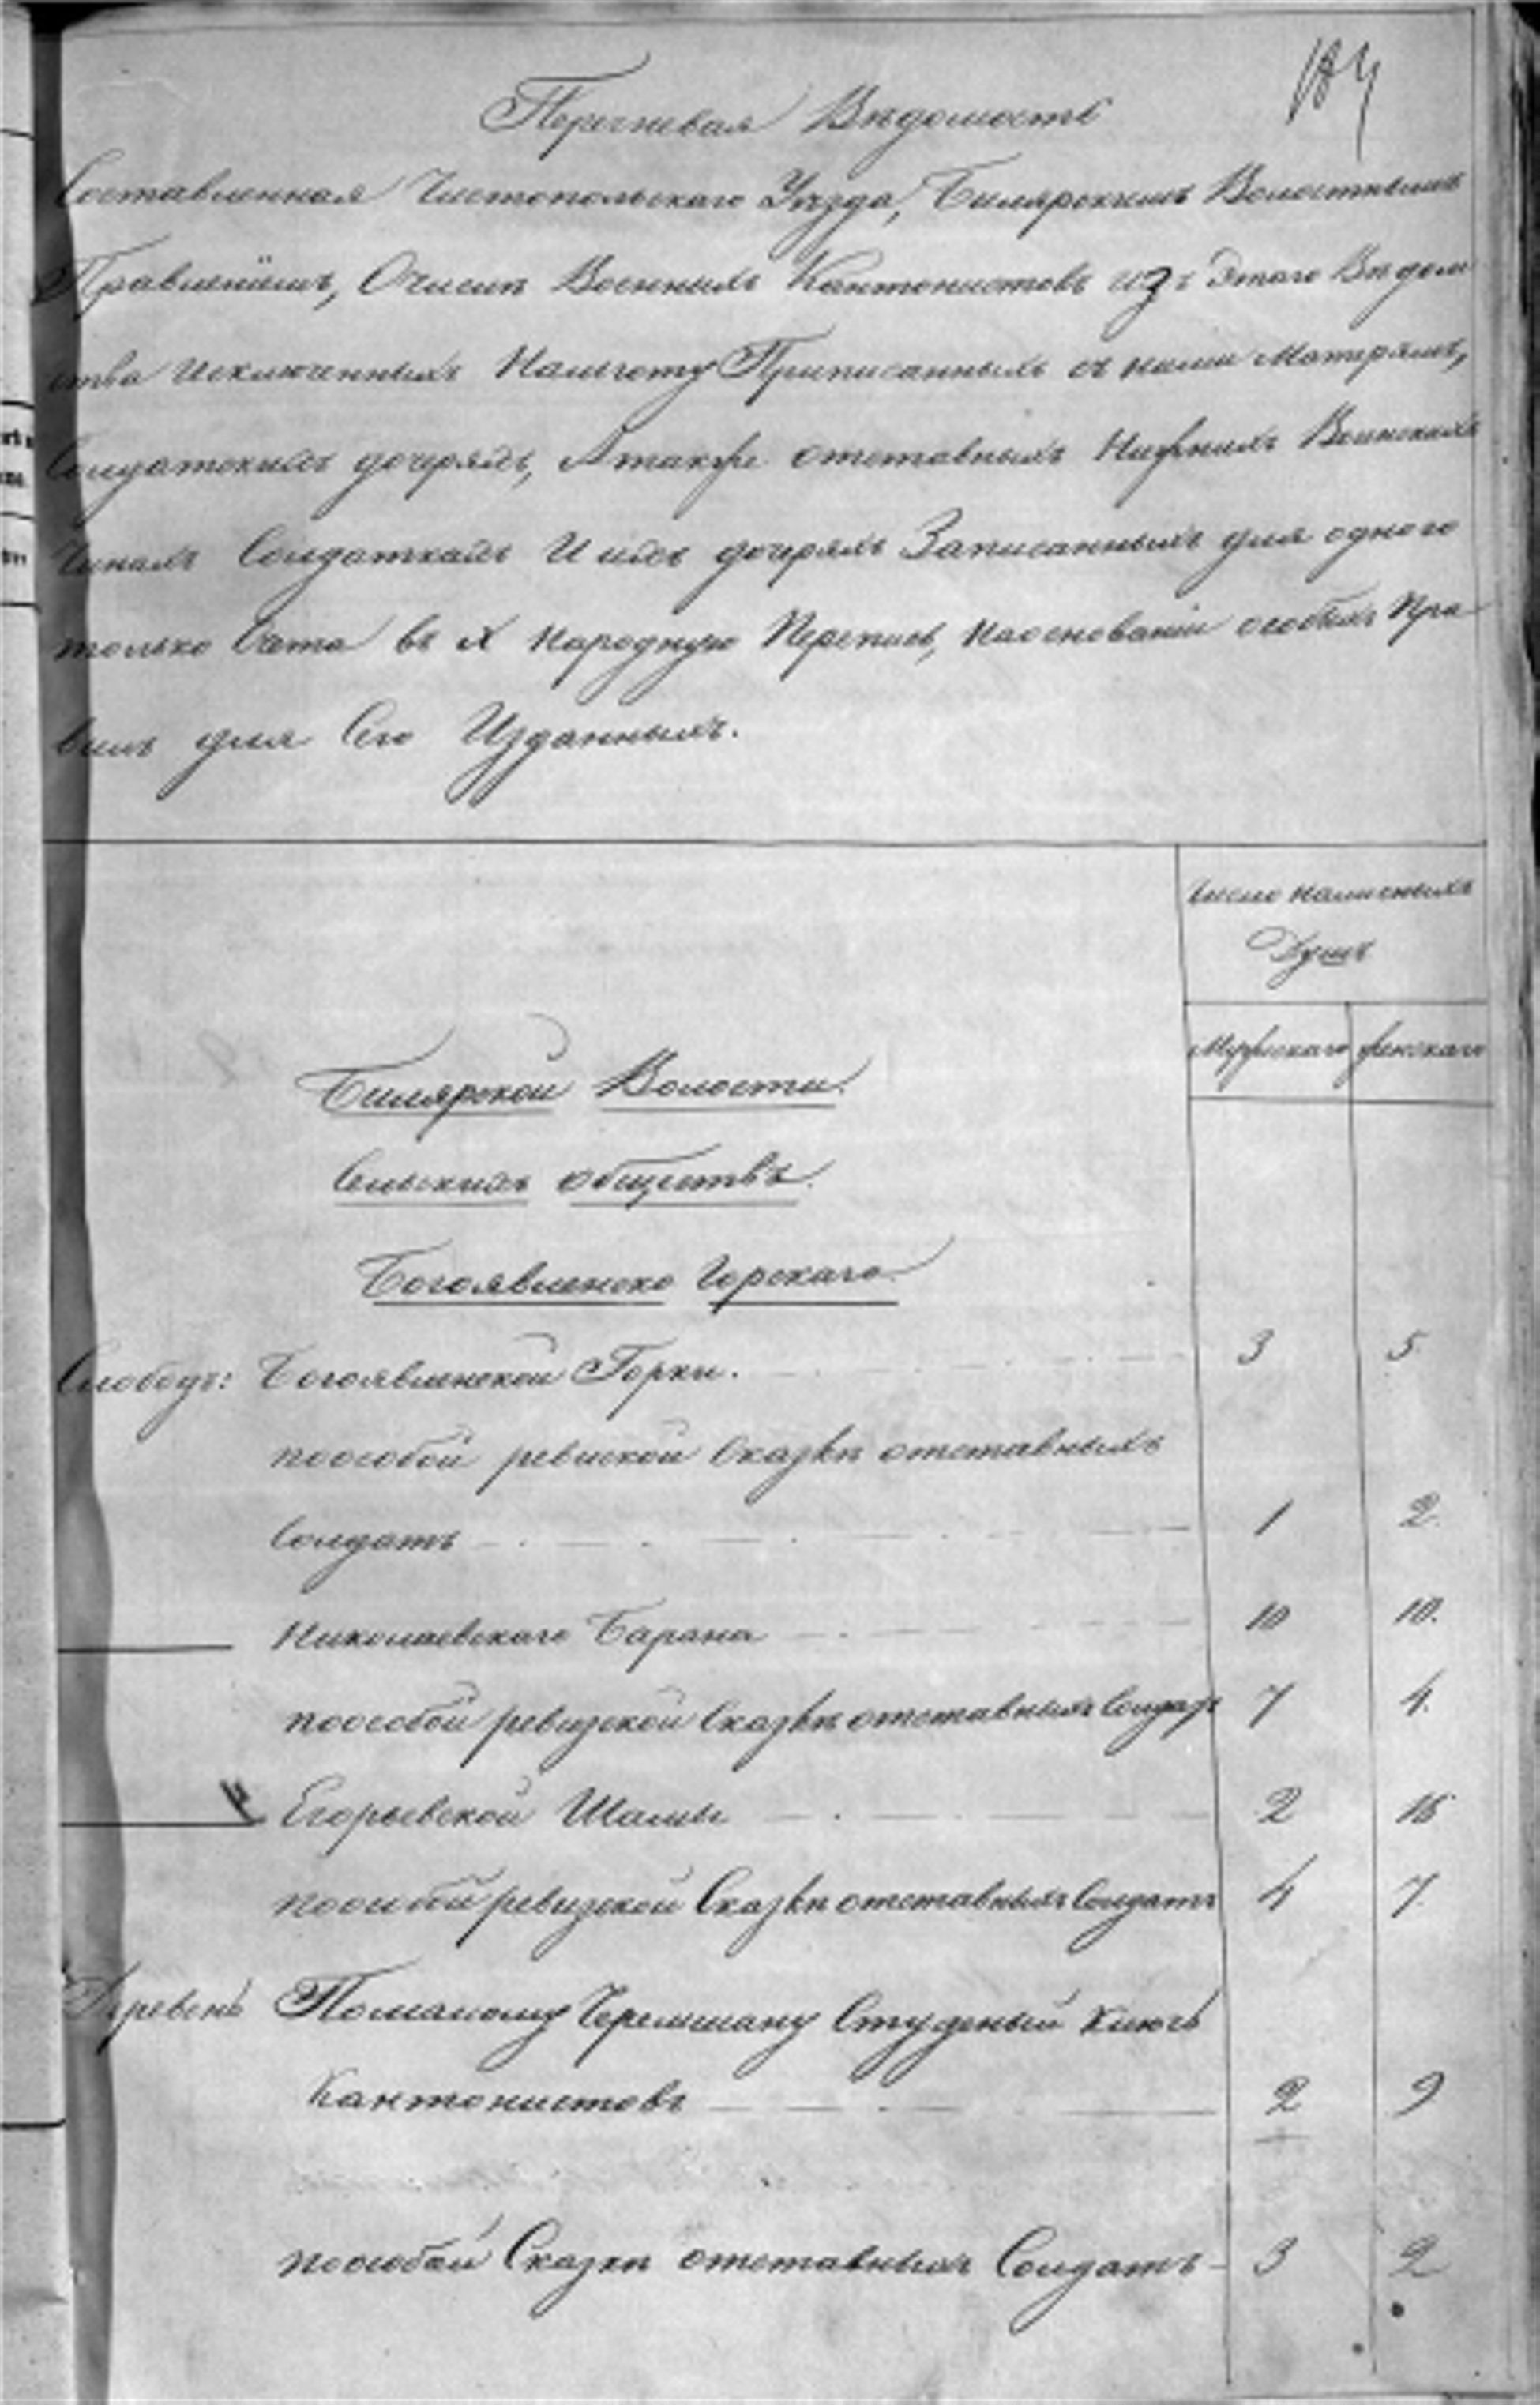 184
Перечневая Вѣдомость
Составленная Чистопольскаго Уѣзда, Билярскимъ Волостнымъ
Правленіемъ, Очислѣ Военныхъ Кантонистовъ изъ Этаго Вѣдом
ства Исключенныхъ Приписанныхъ съ ними Матерямъ,
Солдатскимъ дочерямъ, Атакже отставныхъ Нижнихъ Воинскихъ
Чинахъ Солдаткамъ И ихъ дочеряхъ Записанныхъ для одного
только Счета въ X Народную Перепись, Наоснованіи особыхъ Пра
вилъ для Сего Изданныхъ.
Число наличныхъ
Душъ
Мужскаго женскаго
Билярской Волости.
Сельскихъ обществъ.
Богоявленско Горскаго.
Слободъ: Богоявленской Горки. 3 5
поособой ревиской Сказкѣ отставныхъ
Солдатъ 1 2.
Николаевскаго Барана 10 10.
поособой ревизской Сказкѣ отставныхъ Солдатъ 7 4.
Егорьевской Шамы 2 15
поособой ревизской Сказкѣ отставныхъ Солдатъ 4 7.
Деревень Помалому Черемшану Студеный Ключъ
Кантонистовъ 2 9
поособой Сказкѣ отставныхъ Солдатъ 3 2